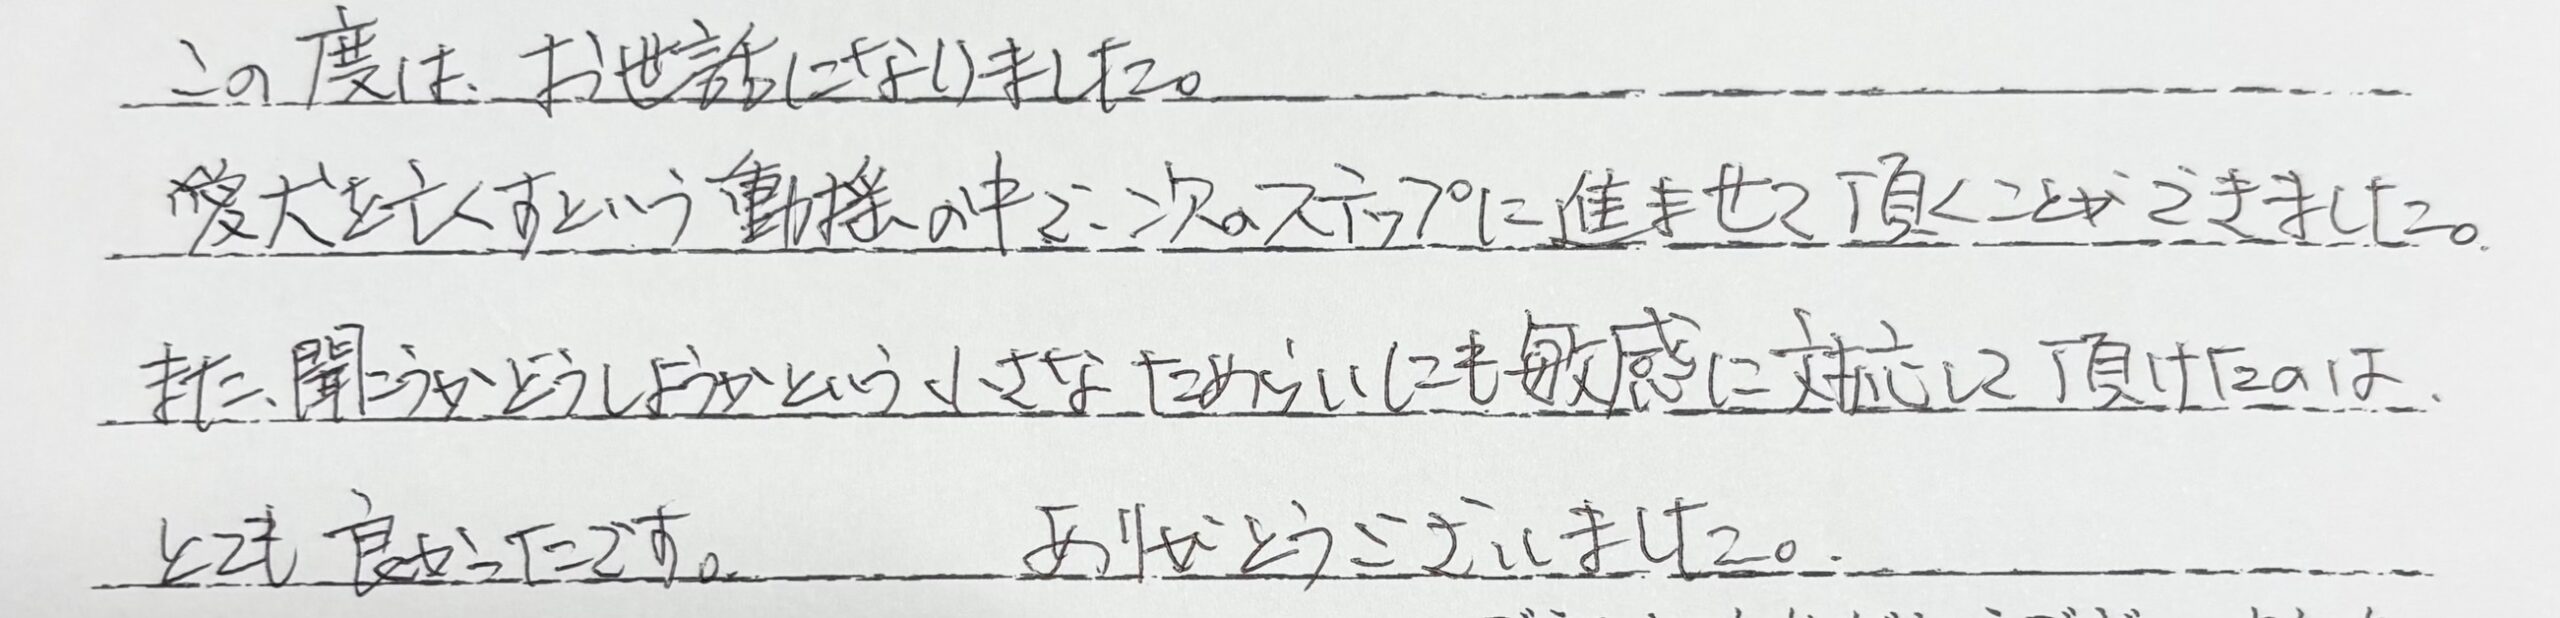 この度は、お世話になりました。
愛犬を亡くすという動揺の中で、次のステップに進ませて頂くことができました。
また、聞こうかどうしようかという小さなためらいにも敏感に対応して頂けたのは、
とても良かったです。 ありがとうございました。